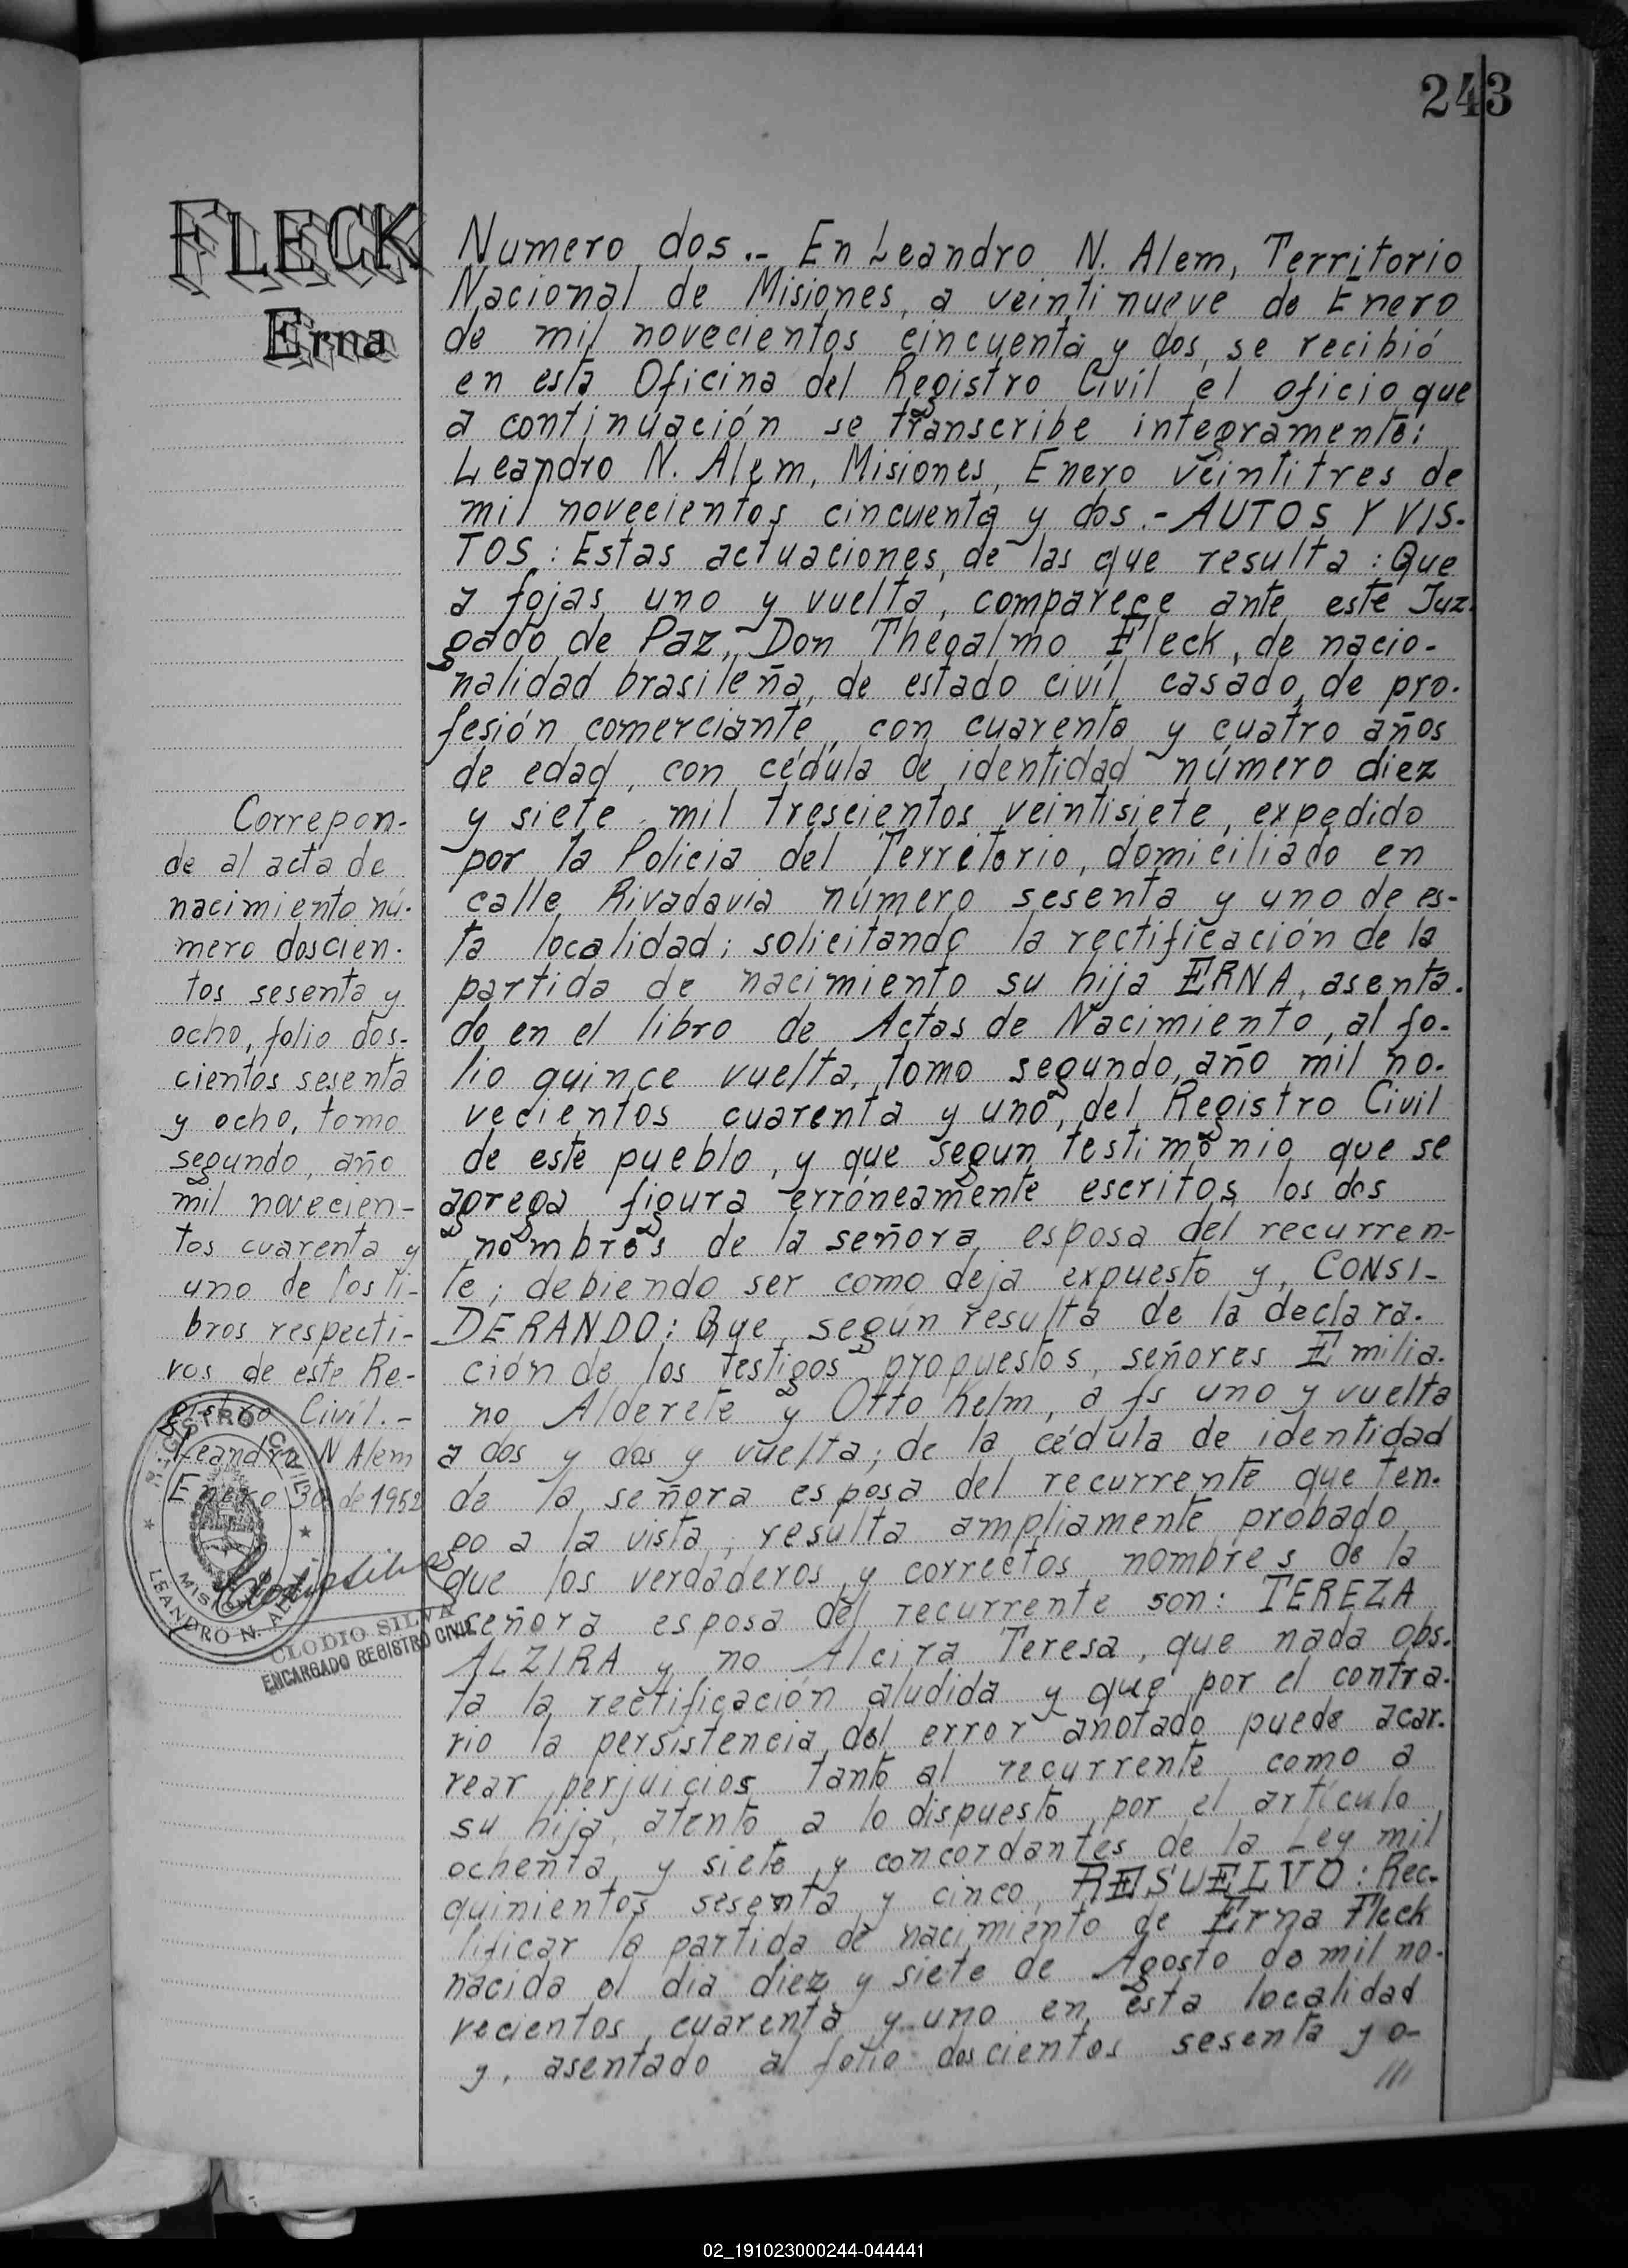 243
FLECK
Erna
Numero dos.- En Leandro N. Alem, Territorio
Nacional de Misiones, a veintinueve de Enero
de mil novecientos cincuenta y dos, se recibió
en esta Oficina del Registro Civil el oficio que
a continuación se transcribe integramente:
Leandro N. Alem, Misiones, Enero veintitres de
mil novecientos cincuenta y dos.- AUTOS Y VIS-
TOS: Estas actuaciones, de las que resulta: Que
a fojas uno y vuelta, comparece ante este Juz-
gado de Paz, Don Thegalmo Fleck, de nacio-
nalidad brasileña, de estado civil casado, de pro-
fesión comerciante, con cuarenta y cuatro años
de edad, con cédula de identidad número diez
y siete mil trescientos veintisiete, expedido
por la Policia del Territorio, domiciliado en
calle Rivadavia número sesenta y uno de es-
ta localidad; solicitando la rectificación de la
partida de nacimiento su hija ERNA, asenta-
do en el libro de Actas de Nacimiento, al fo-
lio quince vuelta, tomo segundo, año mil no-
vecientos cuarenta y uno, del Registro Civil
de este pueblo, y que segun testimonio que se
agrega figura erróneamente escritos los dos
nombres de la señora esposa del recurren-
te; debiendo ser como deja expuesto y, CONSI-
DERANDO: Que, según resulta de la declara-
ción de los testigos propuestos, señores Emilia-
no Alderete y Otto Kelm, a fs uno y vuelta
a dos y dos y vuelta; de la cédula de identidad
de la señora esposa del recurrente que ten-
go a la vista, resulta ampliamente probado
que los verdaderos y correctos nombres de la
señora esposa del recurrente son: TEREZA
ALZIRA y no Alcira Teresa, que nada obs-
ta la rectificación aludida y que por el contra-
rio la persistencia del error anotado puede acar-
rear perjuicios tanto al recurrente como a
su hija, atento a lo dispuesto por el artículo
ochenta y siete y concordantes de la Ley mil
quinientos sesenta y cinco, RESUELVO: Rec-
tificar la partida de nacimiento de Erna Fleck
nacida el dia diez y siete de Agosto de mil no-
vecientos cuarenta y uno en esta localidad
y, asentado al folio doscientos sesenta y o-
///
Correpon-
de al acta de
nacimiento nú-
mero doscien-
tos sesenta y
ocho, folio dos-
cientos sesenta
y ocho, tomo
segundo, año
mil novecien-
tos cuarenta y
uno de los li-
bros respecti-
vos de este Re-
gistro Civil.-
Leandro N Alem
Enero 30 de 1952
REGISTRO CIVIL
MISIONES
LEANDRO N. ALEM
CLODIO SILVA
ENCARGADO REGISTRO CIVIL
02_191023000244-044441